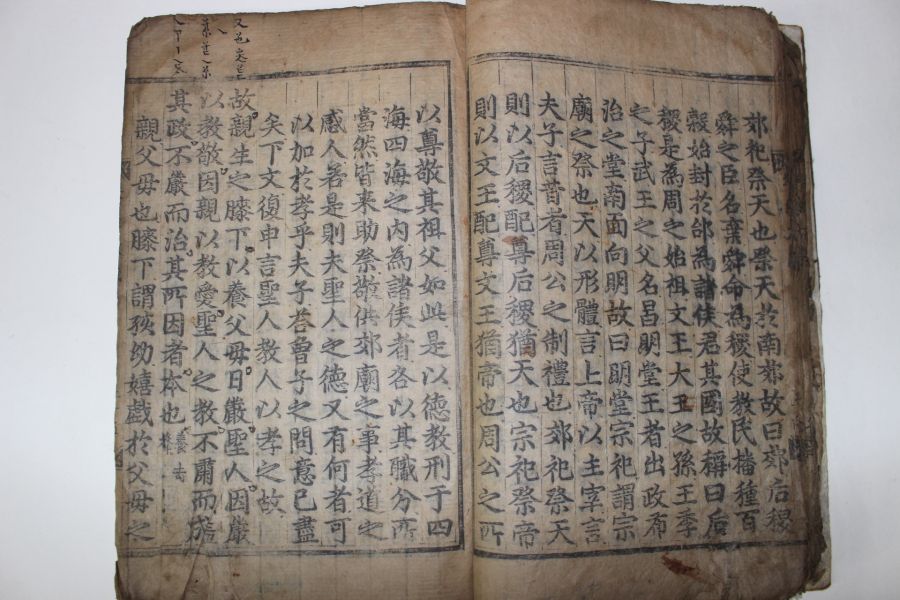 郊祀祭天也祭天於南郊故曰郊后稷
舜之臣名棄舜命為稷使敎民播種百
穀始封於邰為諸侯君其國故稱曰后
稷是為周之始祖文王大王之孫王季
之子武王之父名昌明堂王者出政布
治之堂南面向明故曰明堂宗祀謂宗
廟之祭也天以形體言上帝以主宰言
夫子言昔者周公之制禮也郊祀祭天
則以后稷配尊后稷猶天也宗祀祭帝
則以文王配尊文王猶帝也周公之所
以尊敬其祖父如此是以德敎刑于四
海四海之內為諸侯者各以其職分所
當然皆來助祭敬供郊廟之事孝道之
感人若是則夫聖人之德又有何者可
以加於孝乎夫子荅曾子之問意已盡
矣下文復申言聖人敎人以孝之故
故親生之膝下以養父母日嚴聖人因嚴
以敎敬因親以敎愛聖人之敎不肅而
其政不嚴而治其所因者本也養去
親父母也膝下謂孩幼嬉戲於父母之